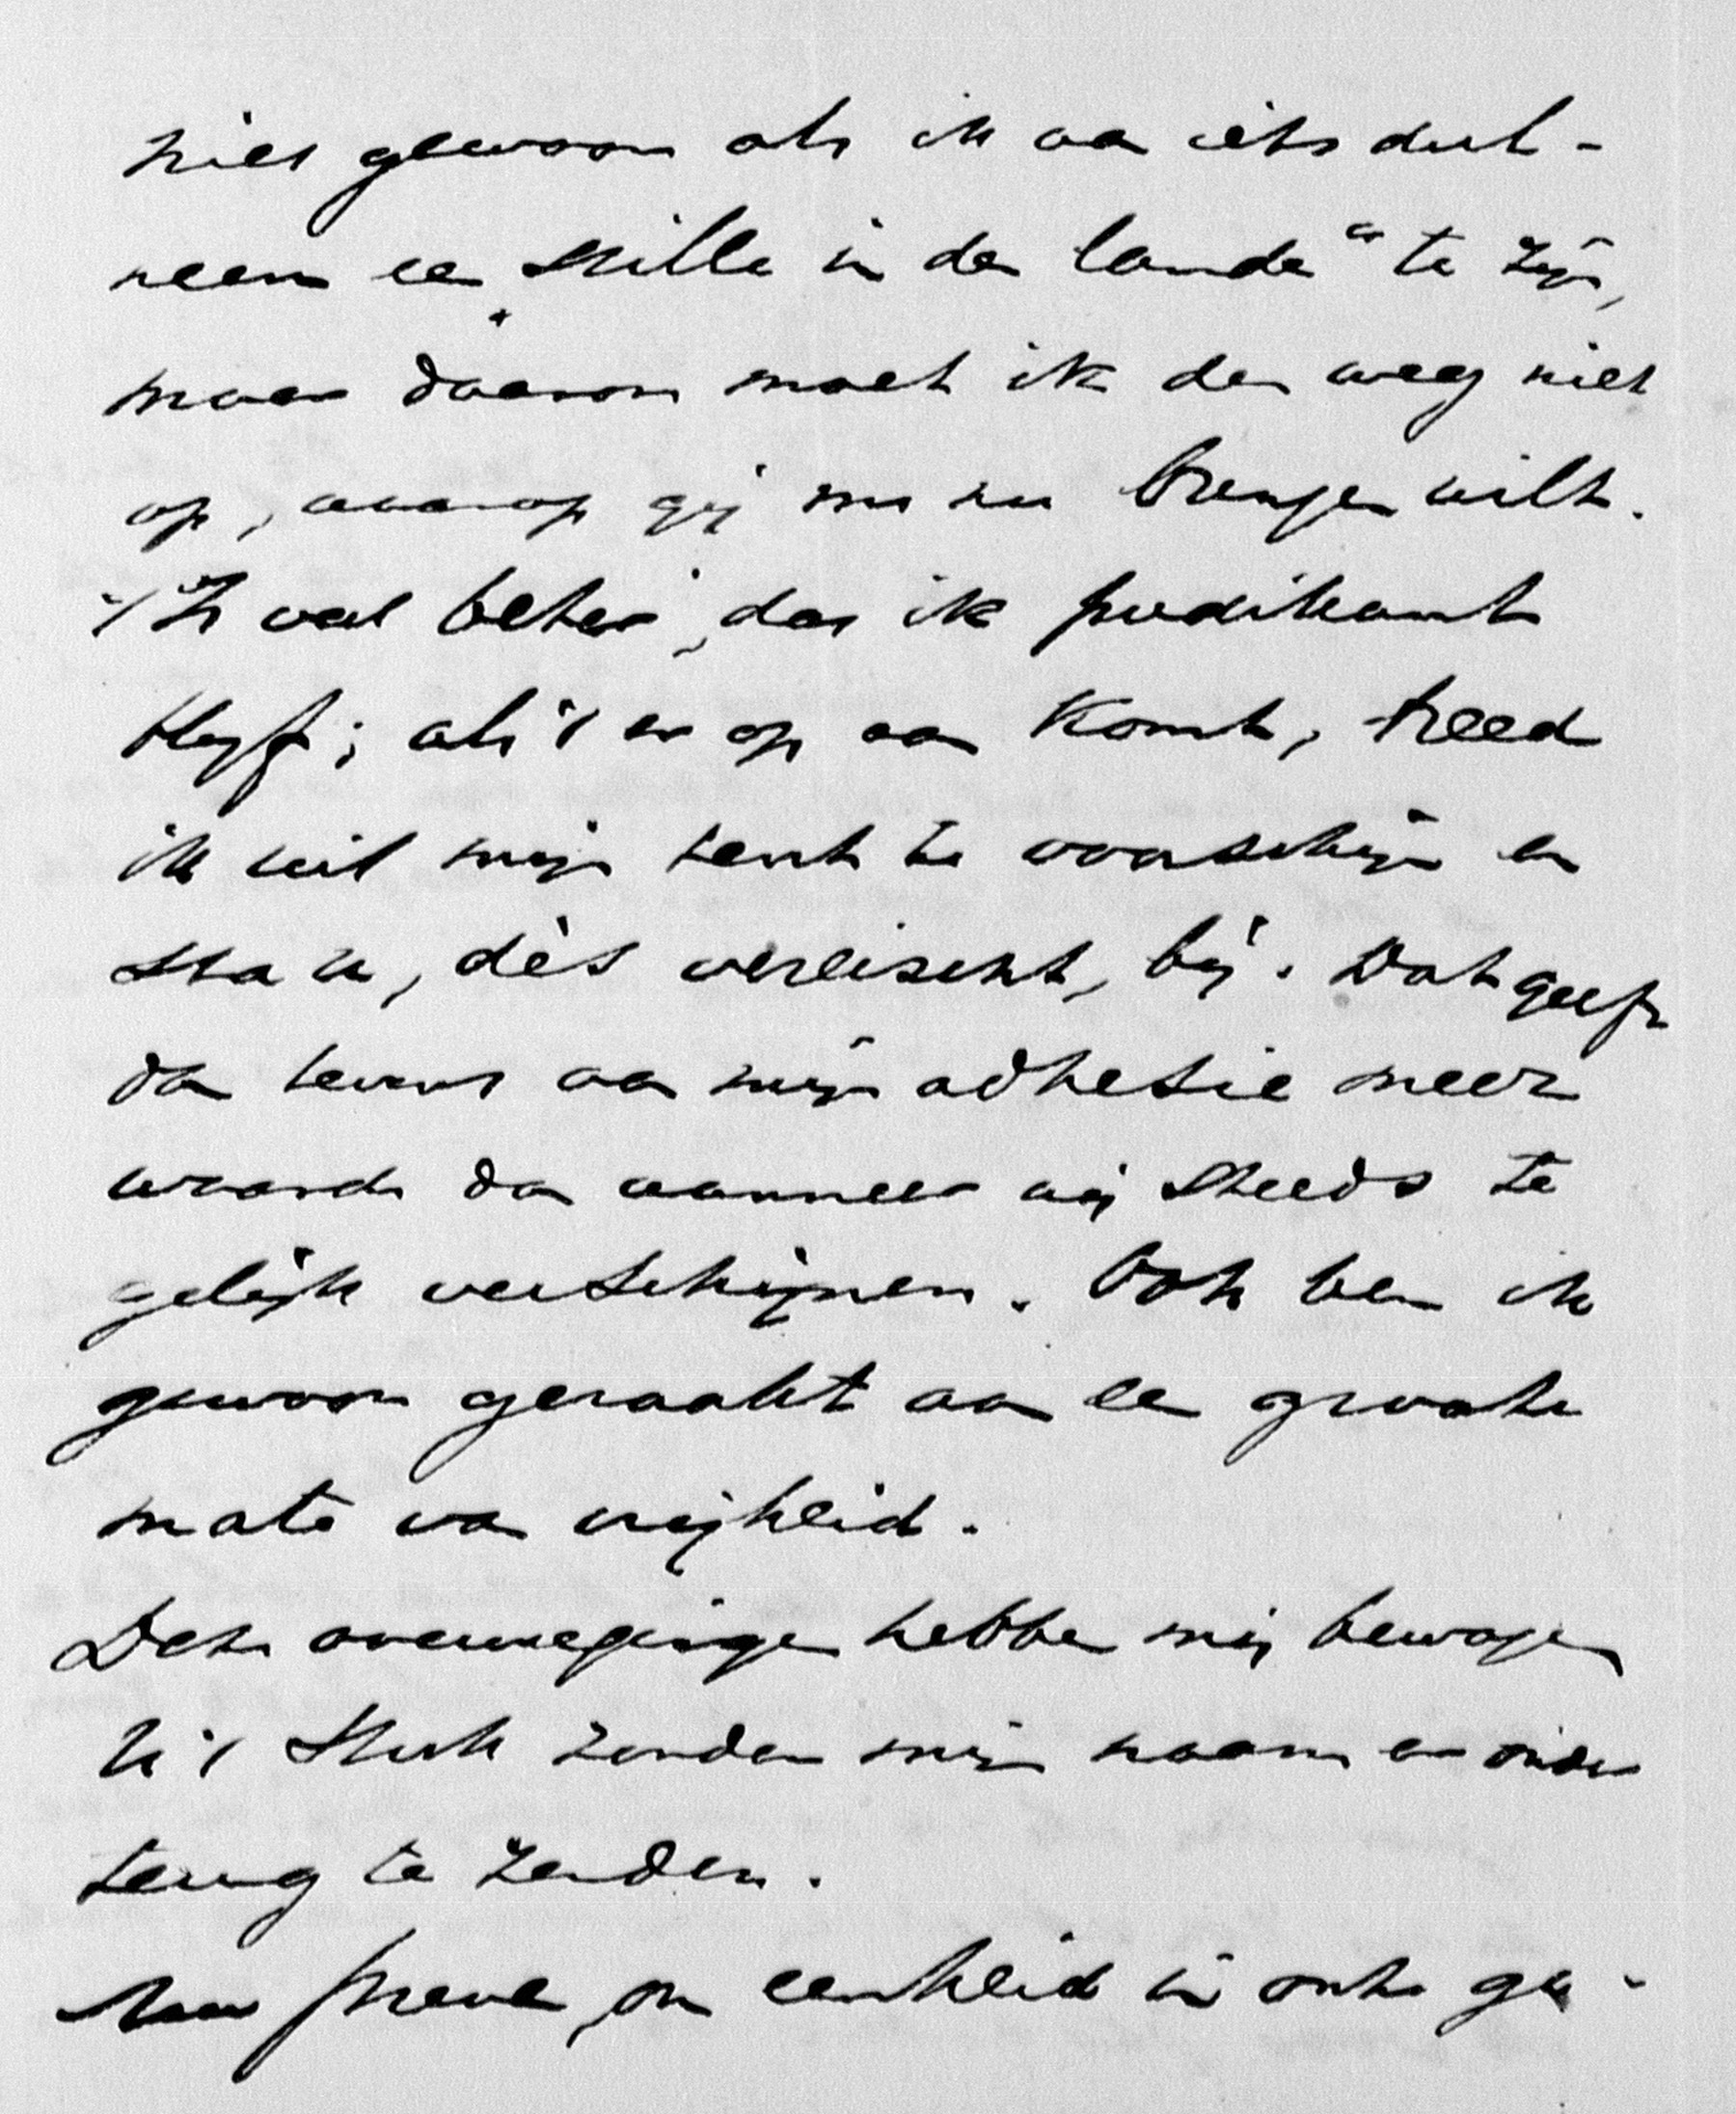 niet gewoon als ik aan iets deel-
neem een „stille in den lande" te zijn,
maar daarom moet ik den weg niet
op, waarop gij me nu brengen wilt.
't Is veel beter, dat ik predikant
blijf; als 't er op aan komt, treed
ik uit mijn tent te voorschijn en
sta u, dès vereischt, bij. Dat geeft
dan tevens aan mijn adhesie meer
waarde dan wanneer wij steeds te
gelijk verschijnen. Ook ben ik
gewoon geraakt aan een groote
mate van vrijheid.
Deze overwegingen hebben mij bewogen
U 't stuk zonder mijn naam er onder
terug te zenden.
Uw streven, om eenheid in onze ge-